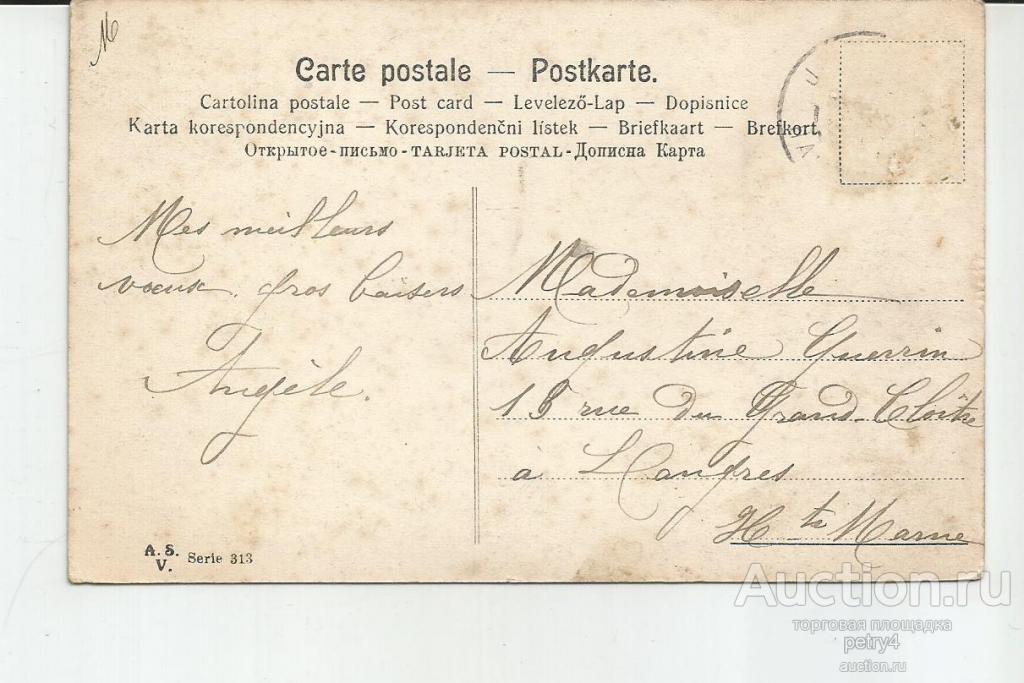 M
Carte postale — Postkarte.
Cartolina postale — Post card — Levelező-Lap — Dopisnice
Karta korespondencyjna — Korespondenčni lístek — Briefkaart — Brefkort.
Открытое-письмо-TARJETA POSTAL-Дописна Карта
Mes meilleurs
voeux. gros baisers
Angèle.
Mademoiselle
Augustine Guerrin
13 rue du Grand-Cloître
à Langres
Hte Marne
A. S.
V.
Serie 313
Auction.ru
торговая площадка
petry4
auction.ru